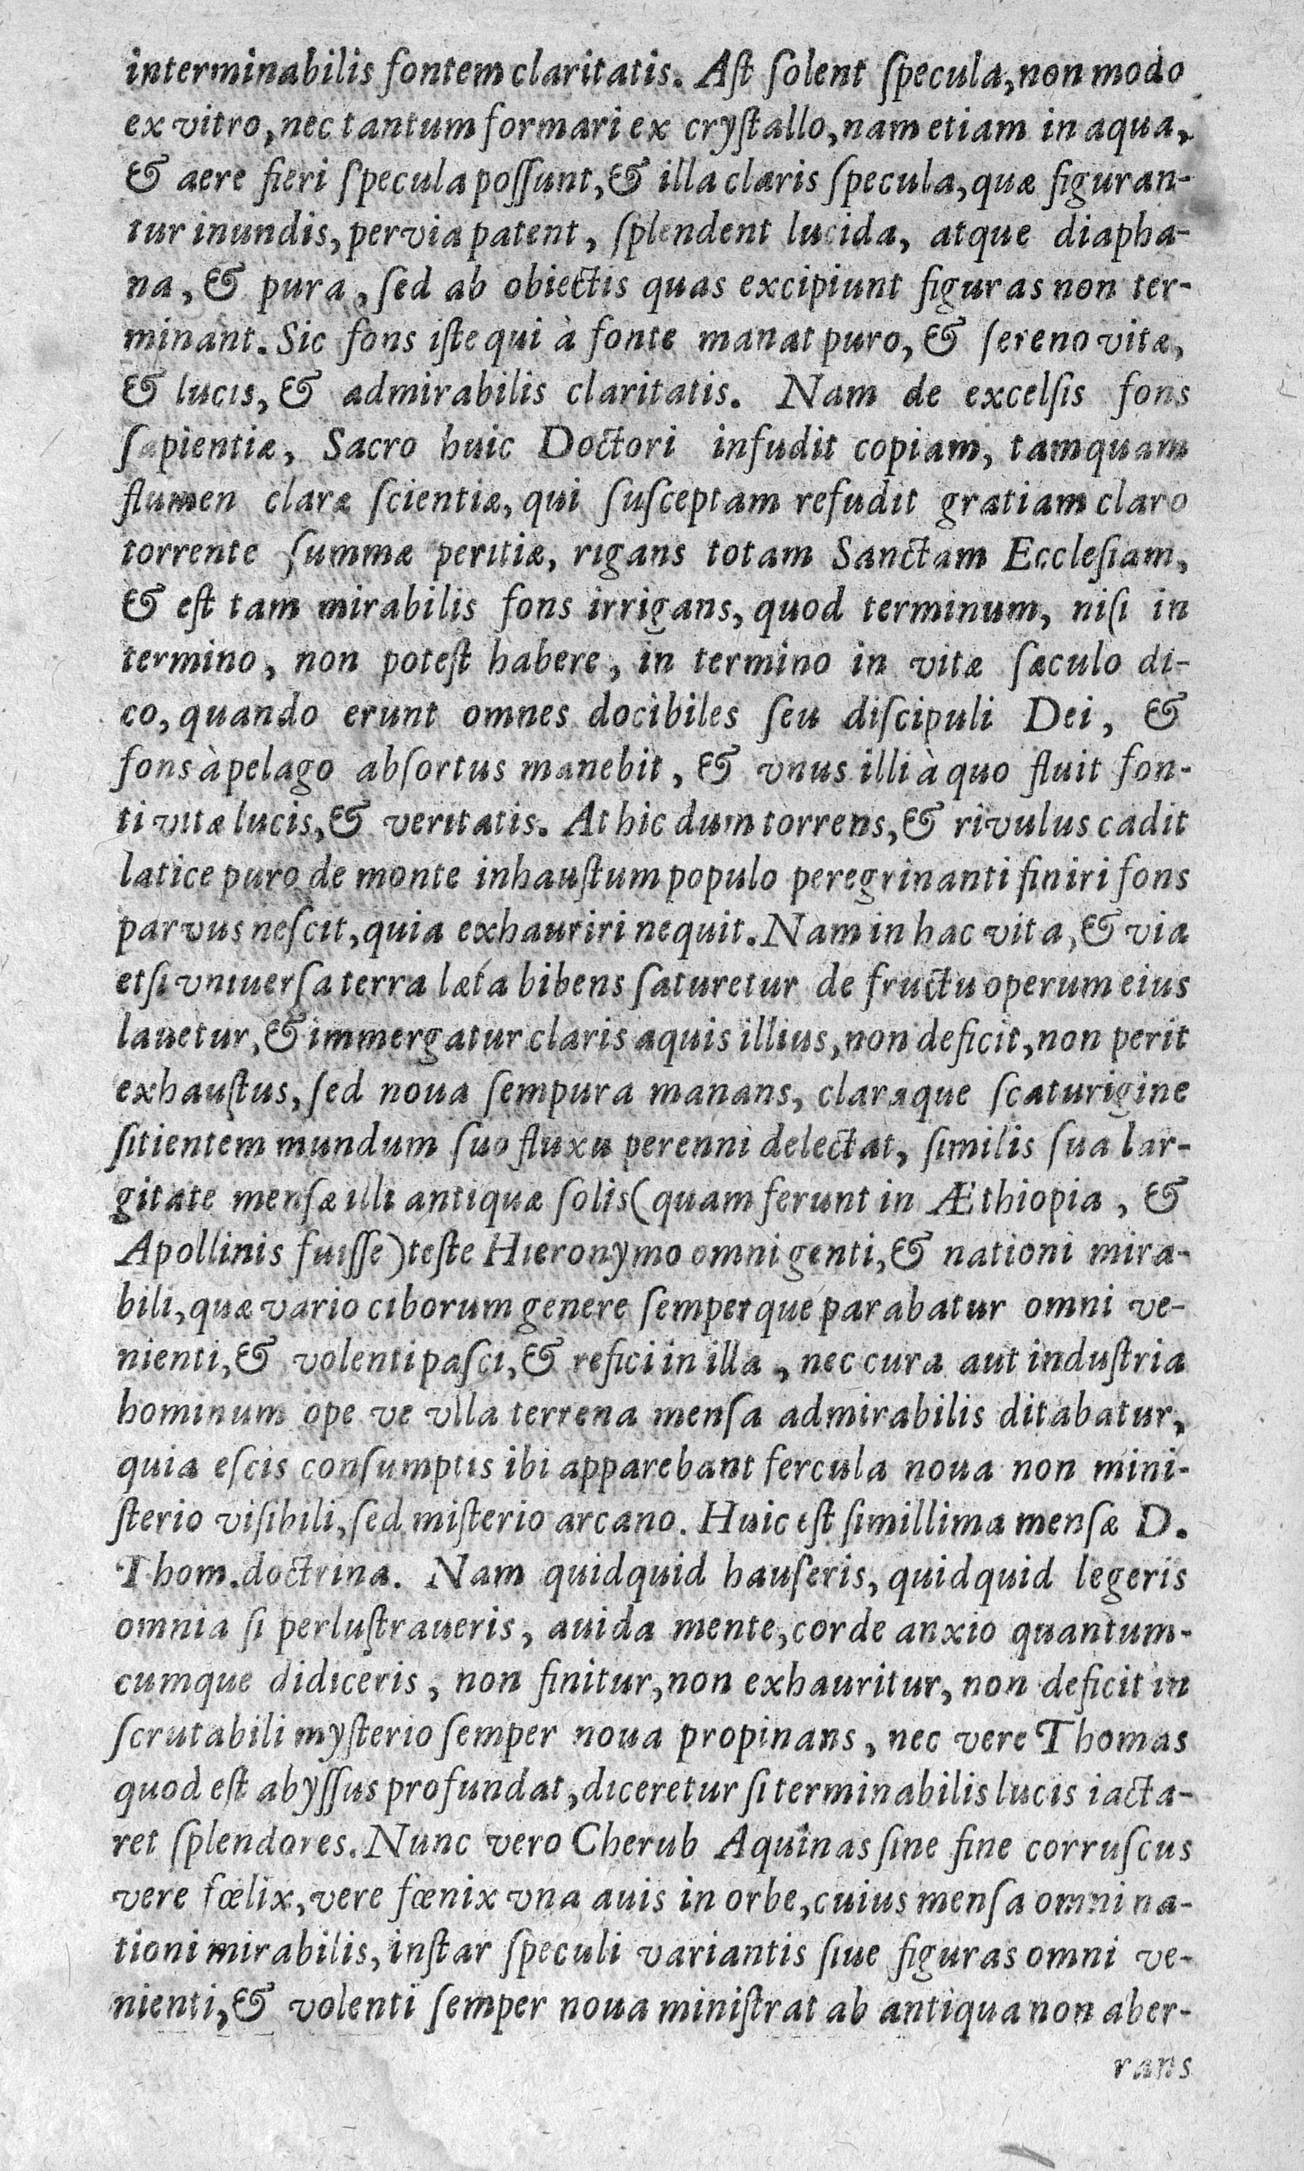 interminabilis fontem claritatis. Aſt ſolent ſpecula, non modo
ex vitro, nec tantum formari ex cryſtallo, nam etiam in aqua,
& aere fieri ſpecula poſſunt, & illa claris ſpecula, quæ figuran-
tur inundis, pervia patent, ſplendent lucida, atque diapha-
na, & pura, ſed ab obiectis quas excipiunt figuras non ter-
minant. Sic fons iſte qui à fonte manat puro, & ſereno vitæ,
& lucis, & admirabilis claritatis. Nam de excelſis fons
ſapientiæ, Sacro huic Doctori infudit copiam, tamquam
flumen claræ ſcientiæ, qui ſuſceptam refudit gratiam claro
torrente ſummæ peritiæ, rigans totam Sanctam Eccleſiam,
& eſt tam mirabilis fons irrigans, quod terminum, niſi in
termino, non poteſt habere, in termino in vitæ ſæculo di-
co, quando erunt omnes docibiles ſeu diſcipuli Dei, &
fons à pelago abſortus manebit, & vnus illi à quo fluit fon-
ti vitæ lucis, & veritatis. At hic dum torrens, & rivulus cadit
latice puro de monte inhauſtum populo peregrinanti finiri fons
parvus neſcit, quia exhauriri nequit. Nam in hac vita, & via
etſi vniuerſa terra læta bibens ſaturetur de fructu operum eius
lauetur, & immergatur claris aquis illius, non deficit, non perit
exhauſtus, ſed noua ſempura manans, claraque ſcaturigine
ſitientem mundum ſuo fluxu perenni delectat, ſimilis ſua lar-
gitate menſæ illi antiquæ ſolis (quam ferunt in Æthiopia, &
Apollinis fuiſſe) teſte Hieronymo omni genti, & nationi mira-
bili, quæ vario ciborum genere ſemperque parabatur omni ve-
nienti, & volenti paſci, & refici in illa, nec cura aut induſtria
hominum ope ve vlla terrena menſa admirabilis ditabatur,
quia eſcis conſumptis ibi apparebant fercula noua non mini-
ſterio viſibili, ſed miſterio arcano. Huic eſt ſimillima menſæ D.
Thom. doctrina. Nam quidquid hauſeris, quidquid legeris
omnia ſi perluſtraueris, auida mente, corde anxio quantum-
cumque didiceris, non finitur, non exhauritur, non deficit in
ſcrutabili myſterio ſemper noua propinans, nec vere Thomas
quod eſt abyſſus profundat, diceretur ſi terminabilis lucis iacta-
ret ſplendores. Nunc vero Cherub Aquinas ſine fine corruſcus
vere fœlix, vere fœnix vna auis in orbe, cuius menſa omni na-
tioni mirabilis, inſtar ſpeculi variantis ſiue figuras omni ve-
nienti, & volenti ſemper noua miniſtrat ab antiqua non aber-
rans